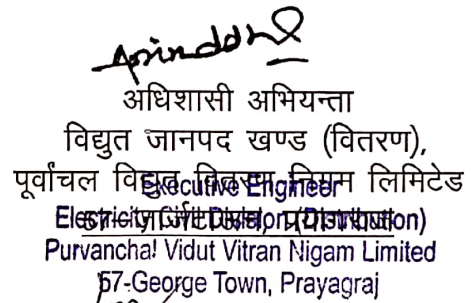 अधिशासी अभियन्ता
विद्युत जानपद खण्ड (वितरण),
पूर्वांचल विद्युत वितरण निगम लिमिटेड
Executive Engineer
57-जार्जटाउन, प्रयागराज
Electricity Civil Division (Distribution)
Purvanchal Vidut Vitran Nigam Limited
57-George Town, Prayagraj